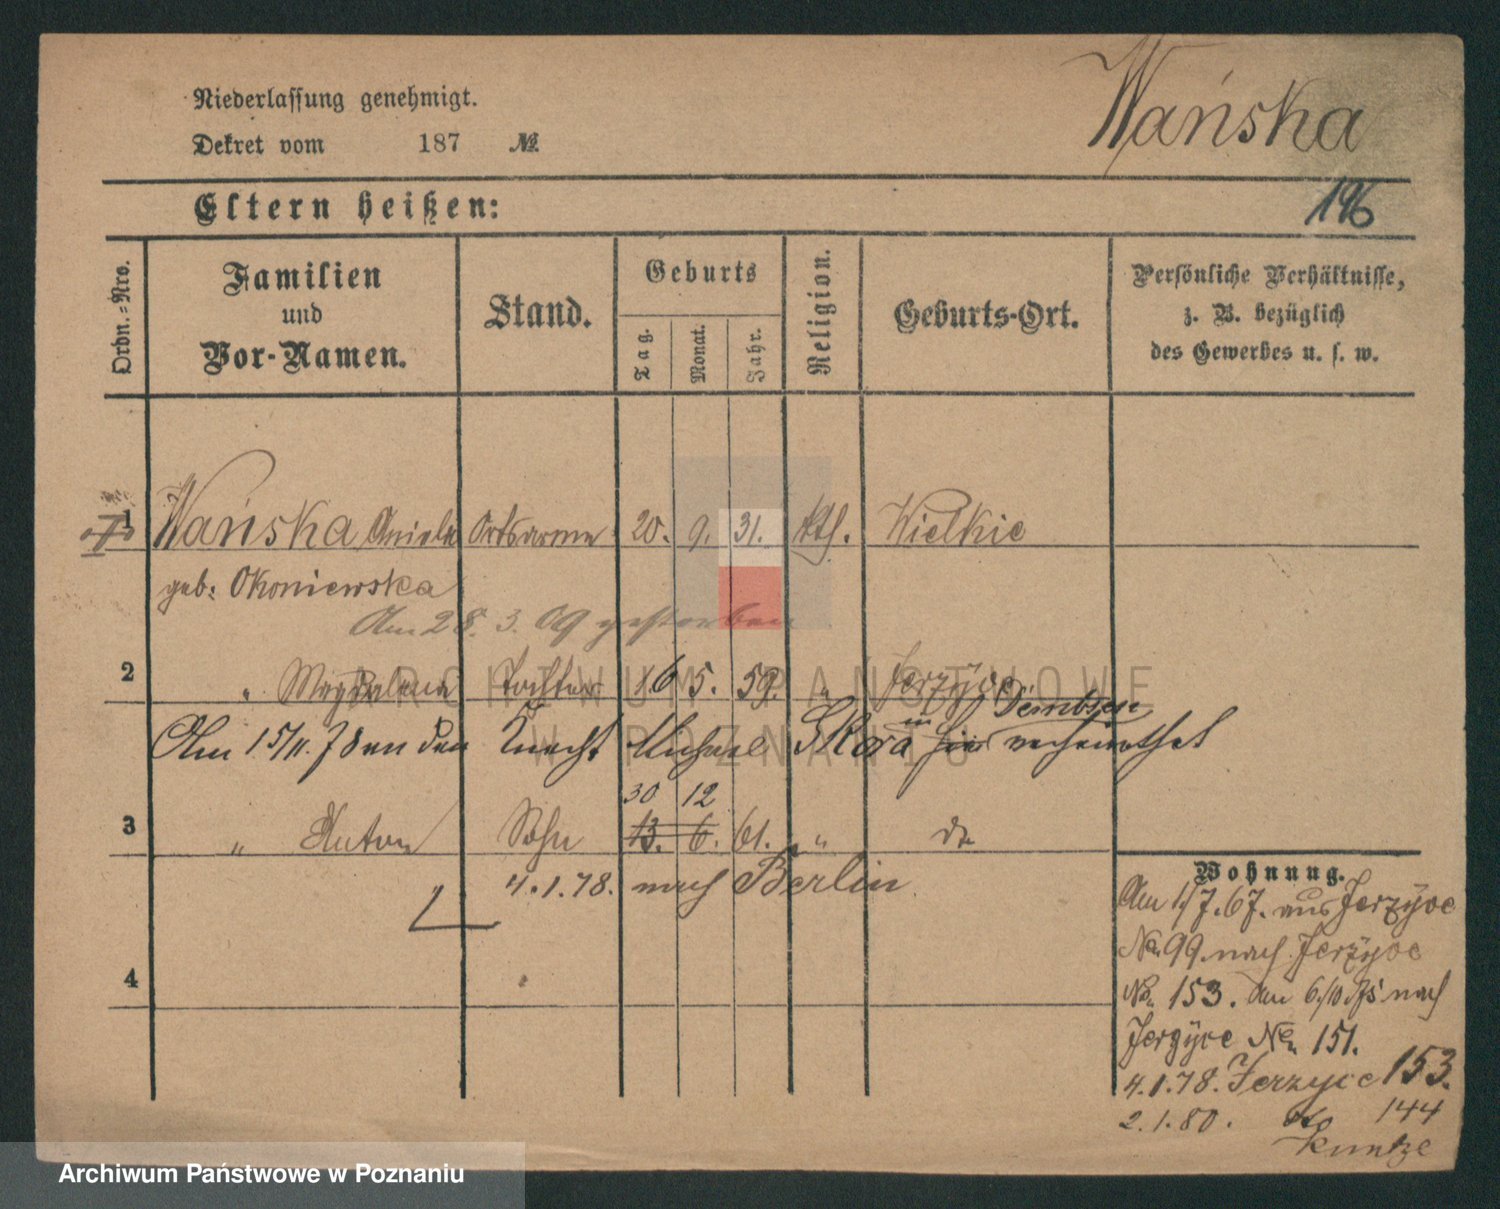 Niederlassung genehmigt.
Wańska
Dekret vom 187 №
196
Eltern heißen:
Ordn.-Nro.
Familien und Vor-Namen.
Stand.
Geburts
Tag.
Monat.
Jahr.
Religion.
Geburts-Ort.
Persönliche Verhältnisse, z. B. bezüglich des Gewerbes u. s. w.
1 Wańska Aniela Ortsarme 20. 9. 31. kth. Wielkie
geb: Okoniewska
Am 28. 3. 09 gestorben
2 " Magdalena Tochter 16 5. 59. " Jerzyce
Dembsen
Am 15/11. 78 an den Knecht Michael Skora in hier verheirathet
30 12
3 " Anton Sohn 13. 6. 61. " do
4.1.78. nach Berlin
4
Wohnung.
Am 1/7.67. aus Jerzyce
No 99 nach Jerzyce
No 153. Am 6/10 75 nach
Jerzyce No 151.
4.1.78. Jerzyce 153.
2.1.80. do 144
Kuntze
ARCHIWUM PAŃSTWOWE
W POZNANIU
Archiwum Państwowe w Poznaniu